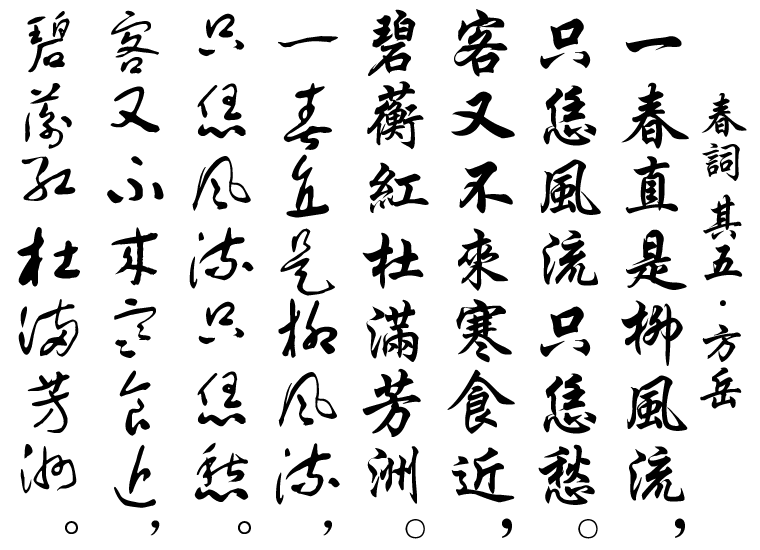 春詞 其五・方岳
一春直是柳風流，
只恁風流只恁愁。
客又不來寒食近，
碧蘅紅杜滿芳洲。
一春直是柳風流，
只恁風流只恁愁。
客又不來寒食近，
碧蘅紅杜滿芳洲。